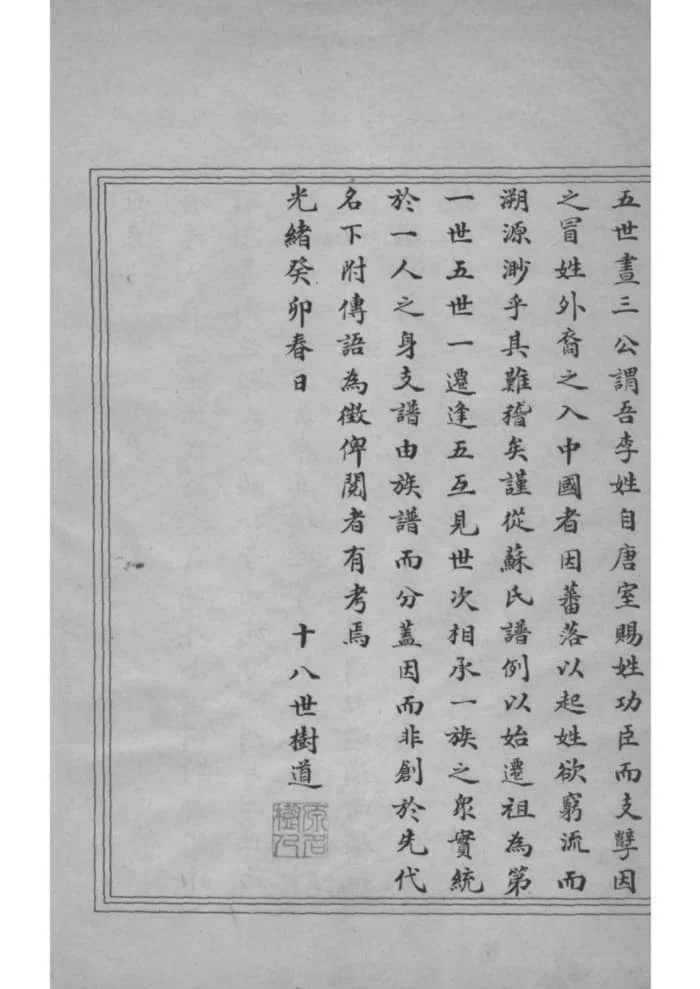 五世晝三公謂吾李姓自唐室賜姓功臣而支孽因
之冒姓外裔之入中國者因蕃落以起姓欲窮流而
溯源渺乎其難稽矣謹從蘇氏譜例以始遷祖為第
一世五世一遷逢五互見世次相承一族之眾實統
於一人之身支譜由族譜而分蓋因而非創於先代
名下附傳語為徵俾閱者有考焉
光緒癸卯春日
十八世樹道